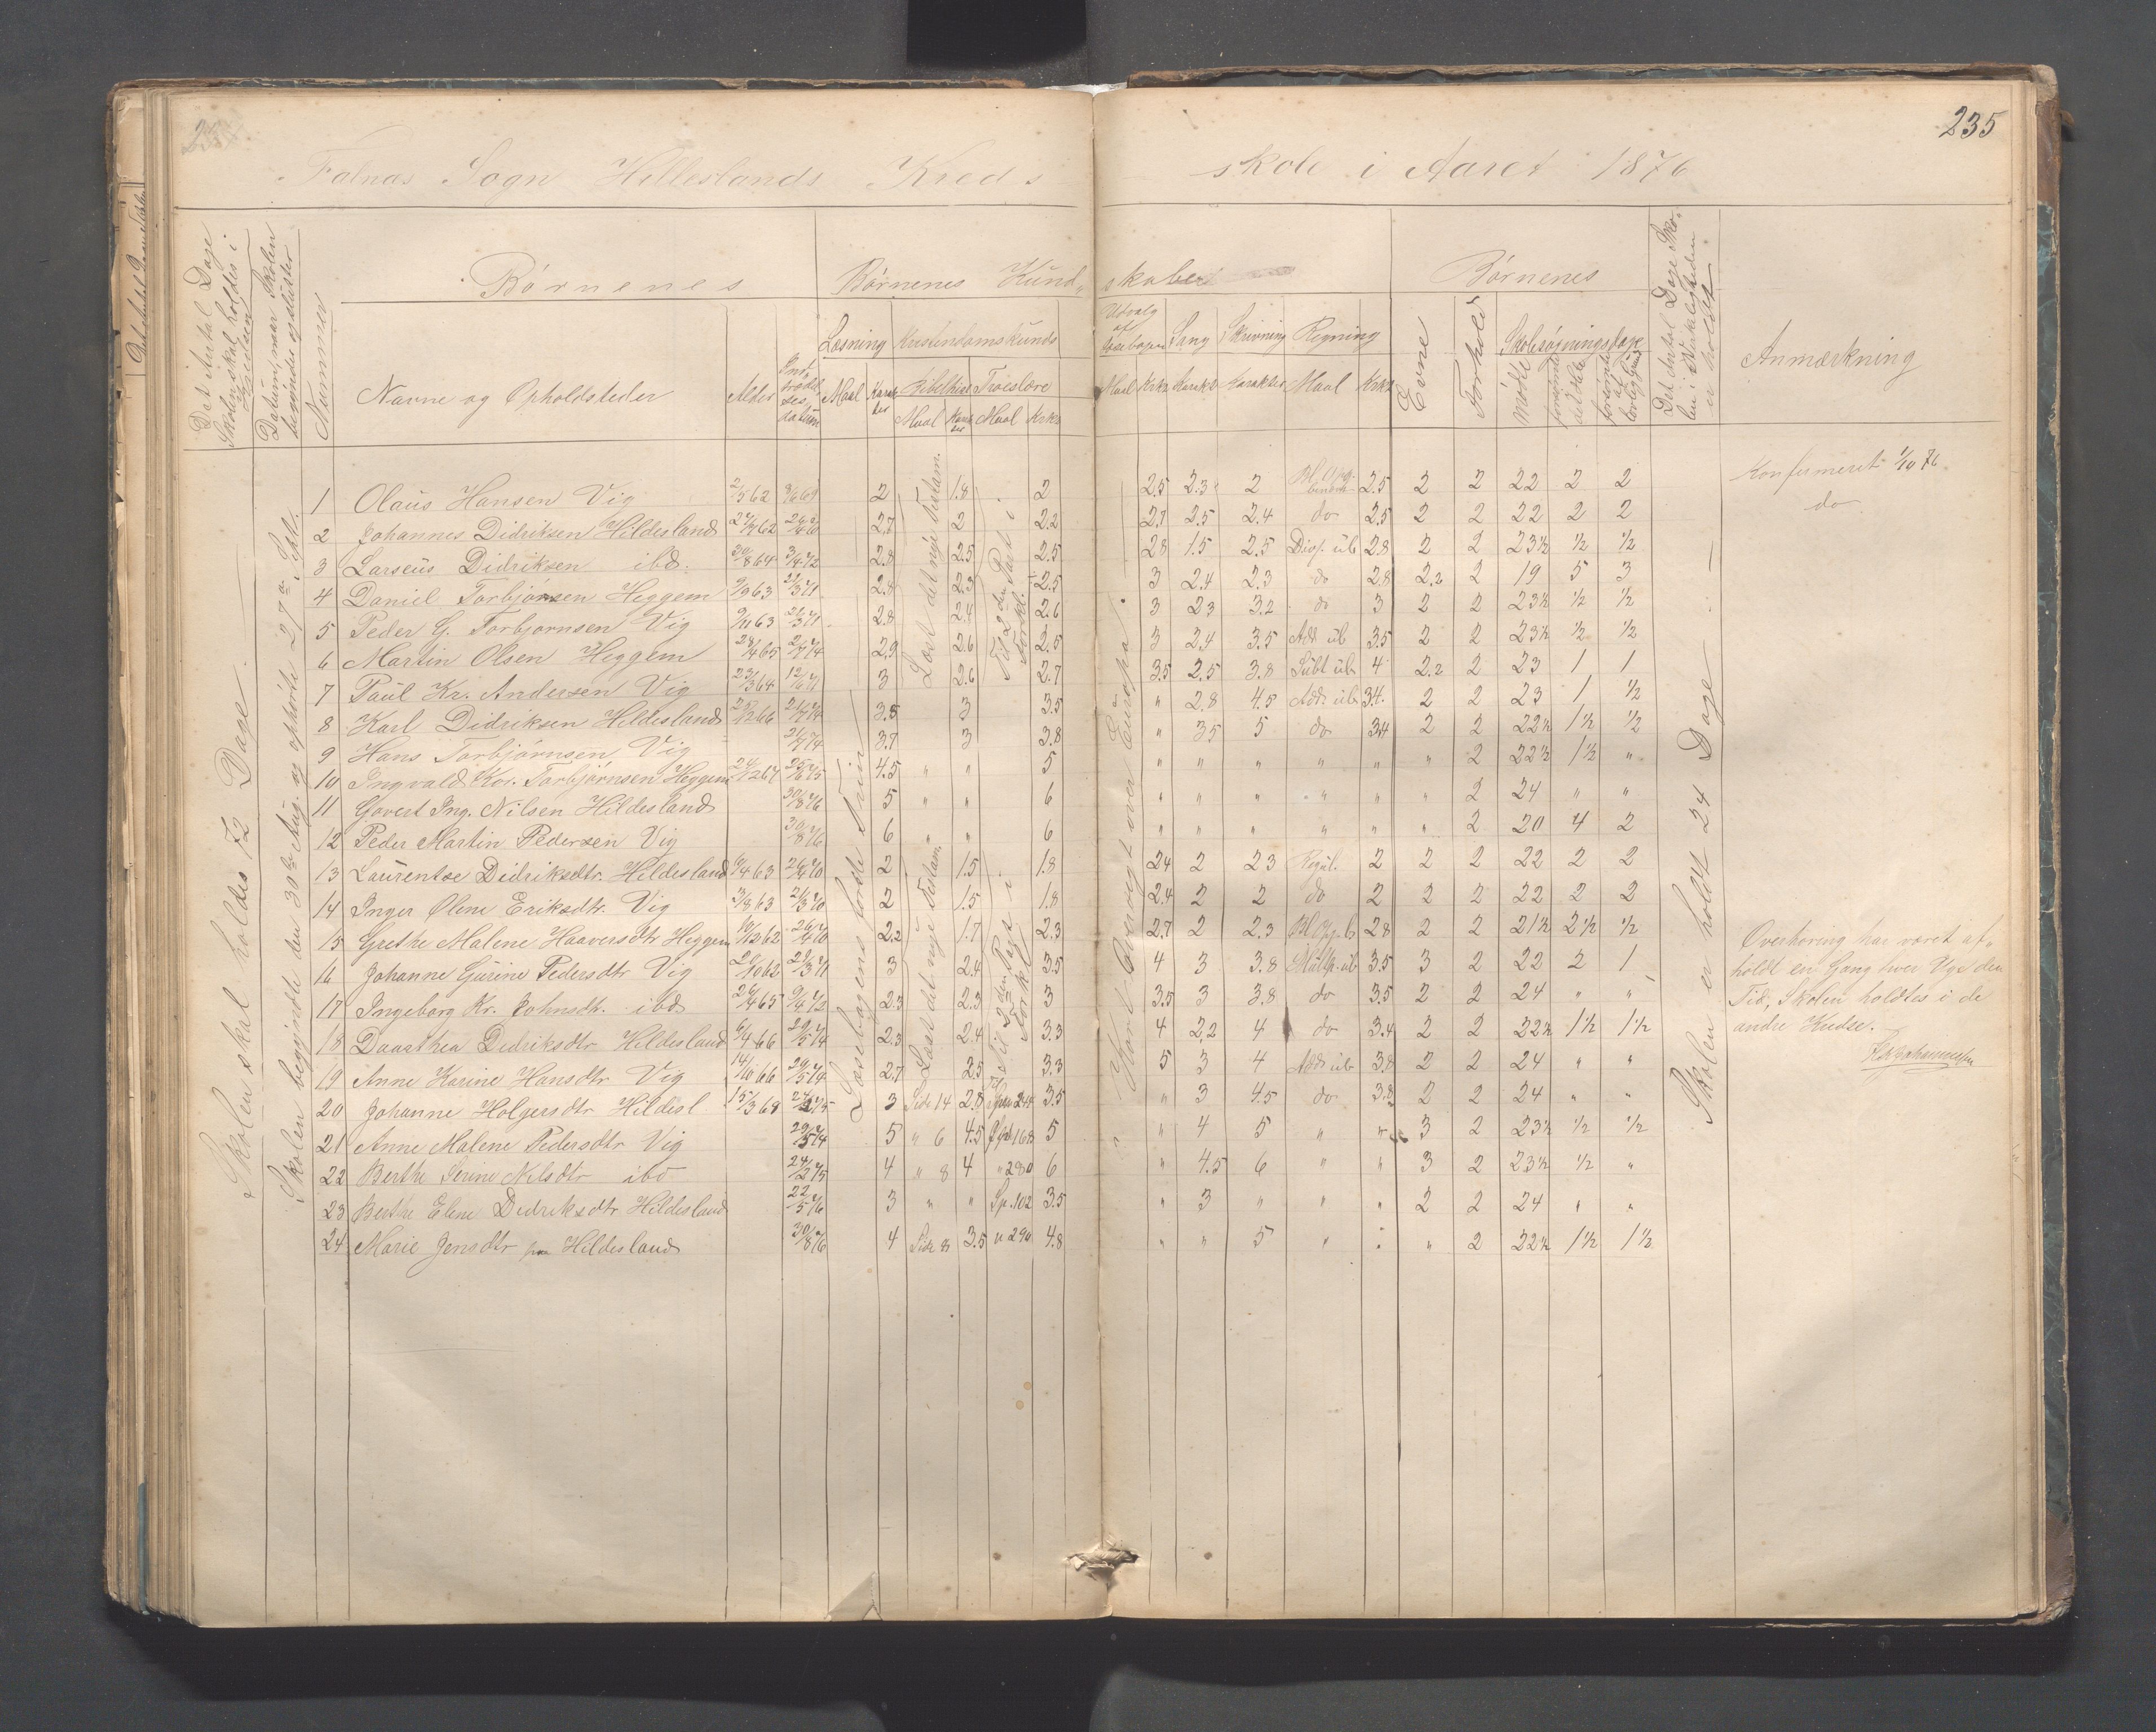 235
Falnæs Sogn Hilleslands Kreds skole i Aaret 1876
Det Antal Dage Skolen skal holdes i Kredsen
Datum, naar Skolen begyndte og slutter
Nummer
Børnenes
Børnenes Kund-skaber
Børnenes
Det Antal Dage Skolen i Virkeligheden er holdt
Anmærkning
Navne og Opholdssteder
Alder
Indtrædelsesdatum
Læsning
Kristendomskunds
Udvalg af Læsebogen
Sang
Skrivning
Regning
Evne
Forhold
Skolesøgningsdage
Maal
Karakter
Bibelhist
Troeslære
Maal
Karakter
Maal
Krkt
Maal
Krkt
Karakt
Karakter
Maal
Krkt
Mødte
forsømte det Hele
forsømte af lovlig Grund
Skolen skal holdes 72 Dage
Skolen begyndte den 30te Aug. og ophørte 27de Sept.
Læsebogens fjerde Trin
Læst det nye Testam.
Til 2den Part i Forkl.
Kort Oversigt over Europa
Skolen er holdt 24 Dage
1 Olaus Hansen Vig 2/5 62 2 1.8 2 2.5 2.3 2 2.5 2 2 22 2 2 Konfirmeret 1/10 76
2 Johannes Didriksen Hildesland 2.7 2 2.2 2.7 2.5 2.4 do 2.5 2 2 22 2 2 do
3 Larseus Didriksen ibd. 30/8 64 3/4 72 2.8 2.5 2.5 2.8 1.5 2.5 Divs. ub 2.8 2 2 23½ ½ ½
4 Daniel Torbjørnsen Heggem 9/9 63 2.8 2.3 2.5 3 2.4 2.3 do 2.8 2.2 2 19 5 3
5 Peder G. Torbjørnsen Vig 9/11 63 21/3 71 2.8 2.4 2.6 3 2.3 3.2 do 3 2 2 23½ ½ ½
6 Martin Olsen Heggem 28/4 65 2.9 2.6 2.5 3 2.4 3.5 Add ub 3.5 2 2 23½ ½ ½
7 Paul Kr. Andersen Vig 23/3 64 12/6 71 3 2.6 2.7 3.5 2.5 3.8 Subt ub 4 2.2 2 23 1 1
8 Karl Didriksen Hildesland 3.5 3 3.5 " 2.8 4.5 Add. ub 3.4 2 2 23 1 ½
9 Hans Torbjørnsen Vig 3.7 3 3.8 " 3.5 5 do 3.4 2 2 22½ 1½ ½
10 Ingvald Kor. Torbjørnsen Heggem 24/12 67 25/6 75 4.5 " " 5 " " " " " " 2 22½ 1½ "
11 Govert Ing. Nilsen Hildesland 30/8 76 5 " " 6 " " " " " " 2 24 " "
12 Peder Martin Pedersen Vig 30/8 76 6 " " 6 " " " " " " 2 20 4 2
13 Laurentse Didriksdtr. Hildesland 9/4 63 26/4 70 2 1.5 1.8 2.4 2 2.3 Regul. 2 2 2 22 2 2
14 Inger Oline Eriksdtr. Vig 3/8 63 21/3 70 2 1.5 1.8 2.4 2 2 do 2 2 2 22 2 2
15 Grethe Malene Haaversdtr Heggem 10/12 62 26/4 70 2.2 1.7 2.3 2.7 2 2.3 2.8 2 2 21½ 2½ ½
16 Johanne Gurine Pedersdtr Vig 20/10 62 21/3 71 3 2.4 3.5 4 3 3.8 Multp. ub 3.5 3 2 22 2 1
17 Ingeborg Kr. Johnsdtr. ibd 26/4 65 9/4 72 2.3 2.3 3 3.5 3 3.8 do 3.5 2 2 24 " "
18 Daarthea Didriksdtr Hildesland 6/4 66 29/5 74 2.3 2.4 3.3 4 2.2 4 do 3.4 2 2 22½ 1½ 1½
19 Anne Karine Hansdtr Vig 14/10 66 29/5 74 2.7 2.5 3.3 5 3 4 Add ub 3.8 2 2 24 " "
20 Johanne Holgersdtr Hildesl 15/3 68 3 Side 14 2.8 3.5 " 3 4.5 do 3.8 2 2 24 " "
21 Anne Malene Pedersdtr Vig 29/5 74 5 " 6 4.5 168 5 " 4 5 " " 3 2 23½ ½ ½
22 Berthe Serine Nilsdtr ibd 24/2 75 4 " 8 4 " 280 6 " 4.5 6 " " 3 2 23½ ½ "
23 Berthe Eline Didriksdtr Hildesland 22/5 76 3 " " Sp. 102 3.5 " 3 " " " 2 2 24 " "
24 Marie Jensdtr Hildesland 30/8 76 4 Side 8 3.5 " 290 4.8 " " 5 " " " 2 22½ 1½ 1½
Overhøring har været af-
holdt en Gang hver Uge den
Tid, Skolen holdtes i de
andre Kredse.